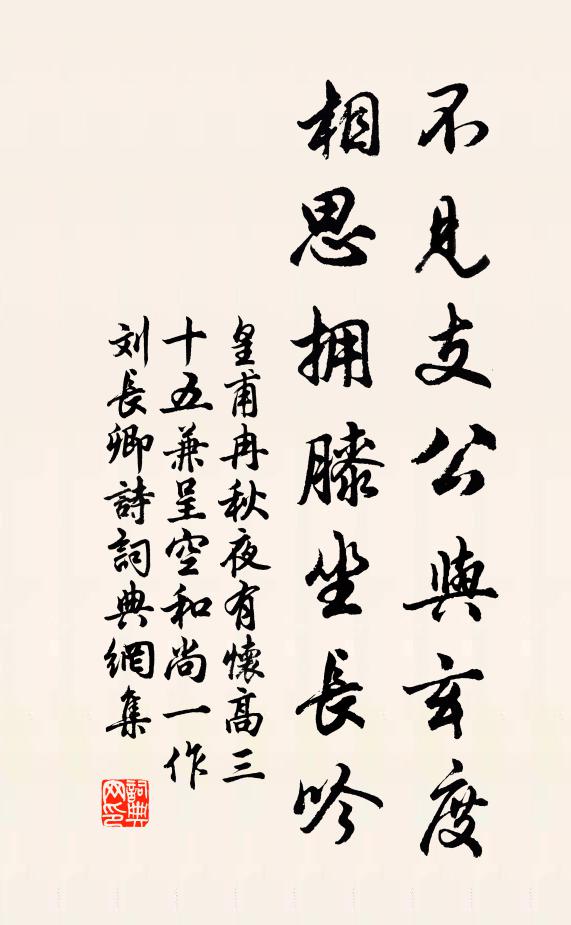 不見支公與玄度
相思拥膝坐長吟
皇甫冉秋夜有懷高三
十五兼呈空和尚一作
刘長卿詩詞典網集
詞典
网印